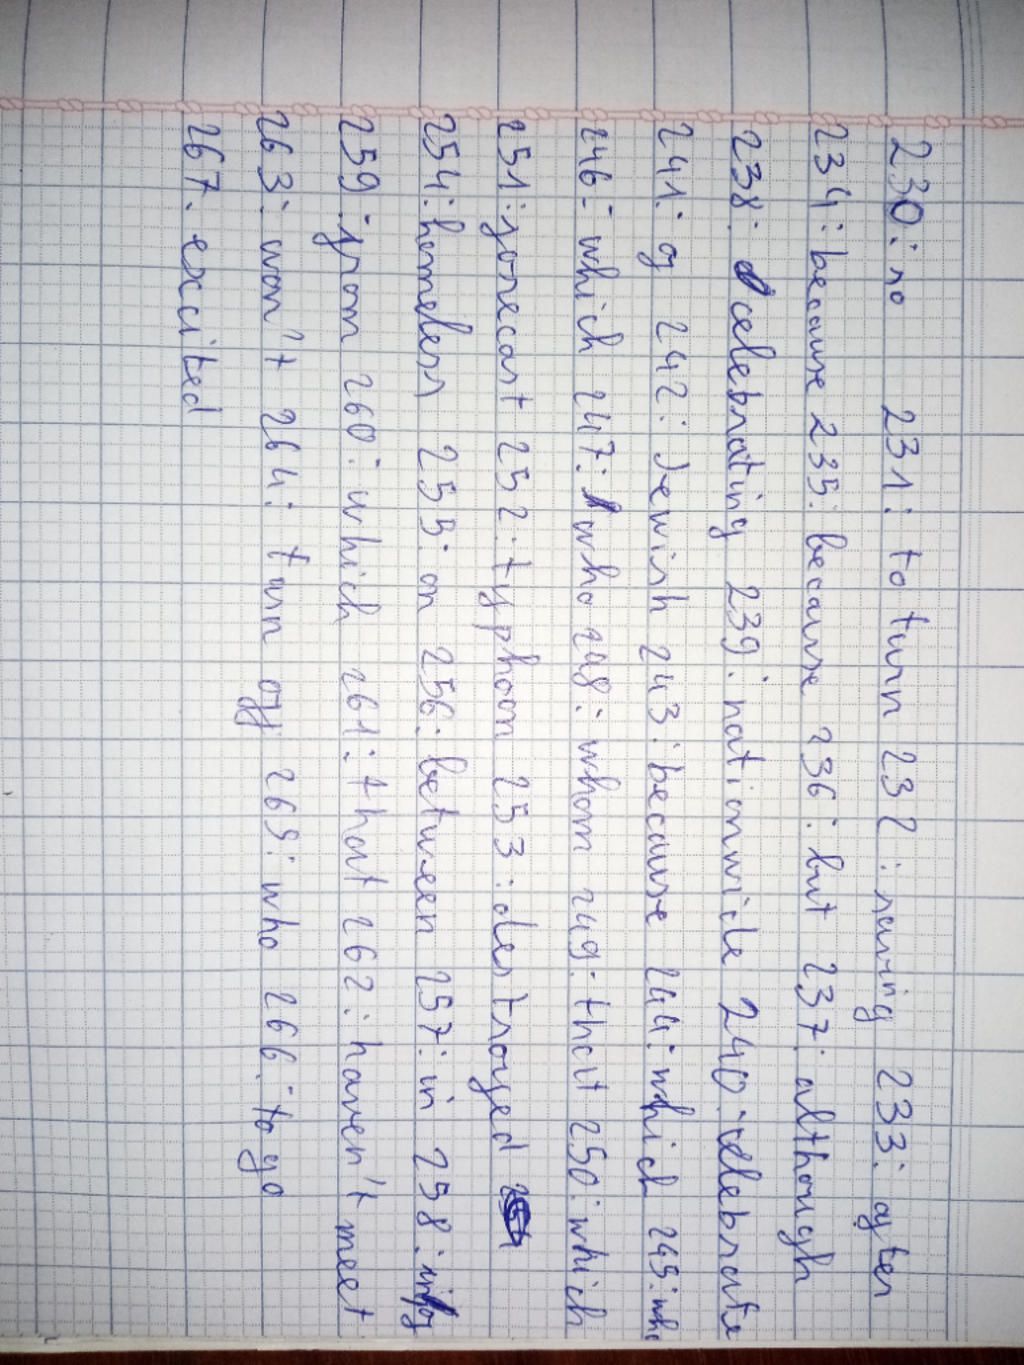 230: no 231: to turn 232: saving 233: after
234: because 235: because 236: but 237: although
238: celebrating 239: nationwide 240: celebrate
241: of 242: Jewish 243: because 244: which 245: who
246: which 247: who 248: whom 249: that 250: which
251: forecast 252: typhoon 253: destroyed
254: homeless 255: on 256: between 257: in 258:
259: from 260: which 261: that 262: haven't meet
263: won't 264: turn off 265: who 266: to go
267. excited